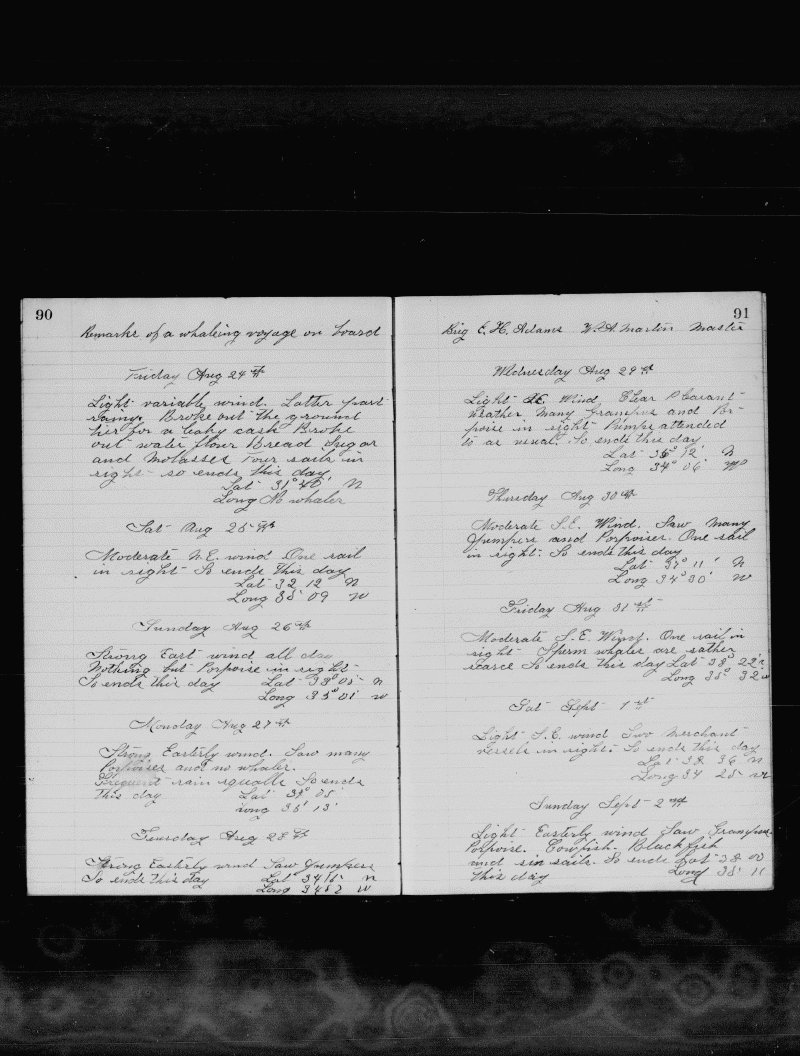 90
Remarks of a whaleing voyage on board
Friday Aug 24th
Light variable wind. Latter part
rainy. Broke out the ground
tier for a leaky cask Broke
out water flour Bread Sugar
and Molasses Four sails in
sight so ends this day.
Lat 31° 40' N
Long No whales
Sat Aug 25th
Moderate N.E. wind One sail
in sight So ends this day
Lat 32 12 N
Long 35 09 W
Sunday Aug 26th
Strong East wind all day
Nothing but Porpoise in sight
So ends this day Lat 33° 05' N
Long 35° 01' W
Monday Aug 27th
Strong Easterly wind. Saw many
Porpoises and no whales.
Frequent rain squalls So ends
this day Lat 05'
Long 35° 13'
Tuesday Aug 28th
Strong Easterly wind Saw Jumpers
So ends this day Lat 34 15 N
Long 34 52 W
91
Brig E. H. Adams W. A Martin Master
Wednesday Aug 29th
Light wind, Clear Pleasant
weather Many Grampus and Por-
poise in sight Pumps attended
to as usual. So ends this day
Lat 12' N
Long 34° 06' W
Thursday Aug 30th
Moderate S.E. Wind. Saw Many
Jumpers and Porpoises. One sail
in sight. So ends this day
Lat 37° 11' N
Long 34° 30' W
Friday Aug 31st
Moderate S.E. Wind. One sail in
sight Sperm whales are rather
scarce So ends this day Lat 38° 22' N
Long 35° 32 W
Sat Sept 1st
Light S.E. wind Two Merchant
vessels in sight. So ends this day
Lat 38 36 N
Long 34 25 W
Sunday Sept 2nd
Light Easterly wind Saw Grampus
Porpoise. Cowfish. Blackfish
and six sails. So ends Lat 38 00
this day Long 35 11